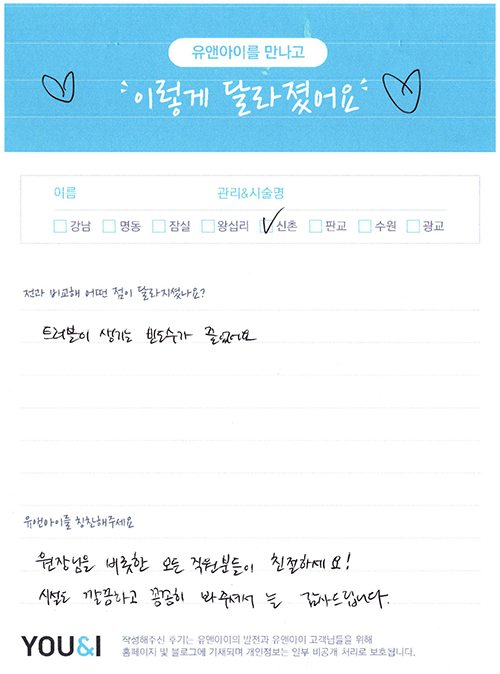 유앤아이를 만나고
이렇게 달라졌어요
이름 관리&시술명
강남 명동 잠실 왕십리 신촌 판교 수원 광교
전과 비교해 어떤 점이 달라지셨나요?
트러블이 생기는 빈도수가 줄었어요
유앤아이를 칭찬해주세요
원장님을 비롯한 모든 직원분들이 친절하세요!
시설도 깔끔하고 꼼꼼히 봐주셔서 늘 감사드립니다.
YOU&I
작성해주신 후기는 유앤아이의 발전과 유앤아이 고객님들을 위해
홈페이지 및 블로그에 기재되며 개인정보는 일부 비공개 처리로 보호됩니다.